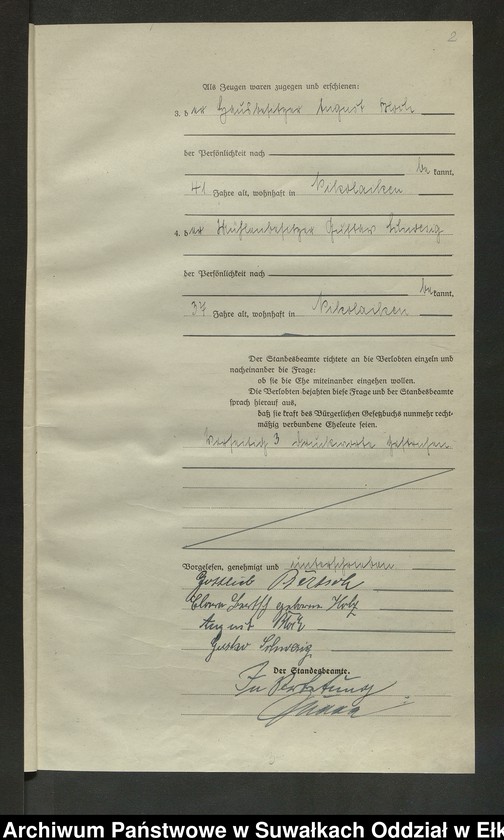 2
Als Zeugen waren zugegen und erschienen:
3. der Hausbesitzer August
der Persönlichkeit nach
be kannt,
41 Jahre alt, wohnhaft in Nikolaiken
4. der Mühlenbesitzer Gustav
der Persönlichkeit nach
be kannt,
37 Jahre alt, wohnhaft in Nikolaiken
Der Standesbeamte richtete an die Verlobten einzeln und
nacheinander die Frage:
ob sie die Ehe miteinander eingehen wollen.
Die Verlobten bejahten diese Frage und der Standesbeamte
sprach hierauf aus,
daß sie kraft des Bürgerlichen Gesetzbuchs nunmehr recht-
mäßig verbundene Eheleute seien.
Vorseitig 3 Druckworte gestrichen
Vorgelesen, genehmigt und unterschrieben
Gottlieb
geborene
August
Gustav
Der Standesbeamte.
In Vertretung
Archiwum Państwowe w Suwałkach Oddział w Ełk